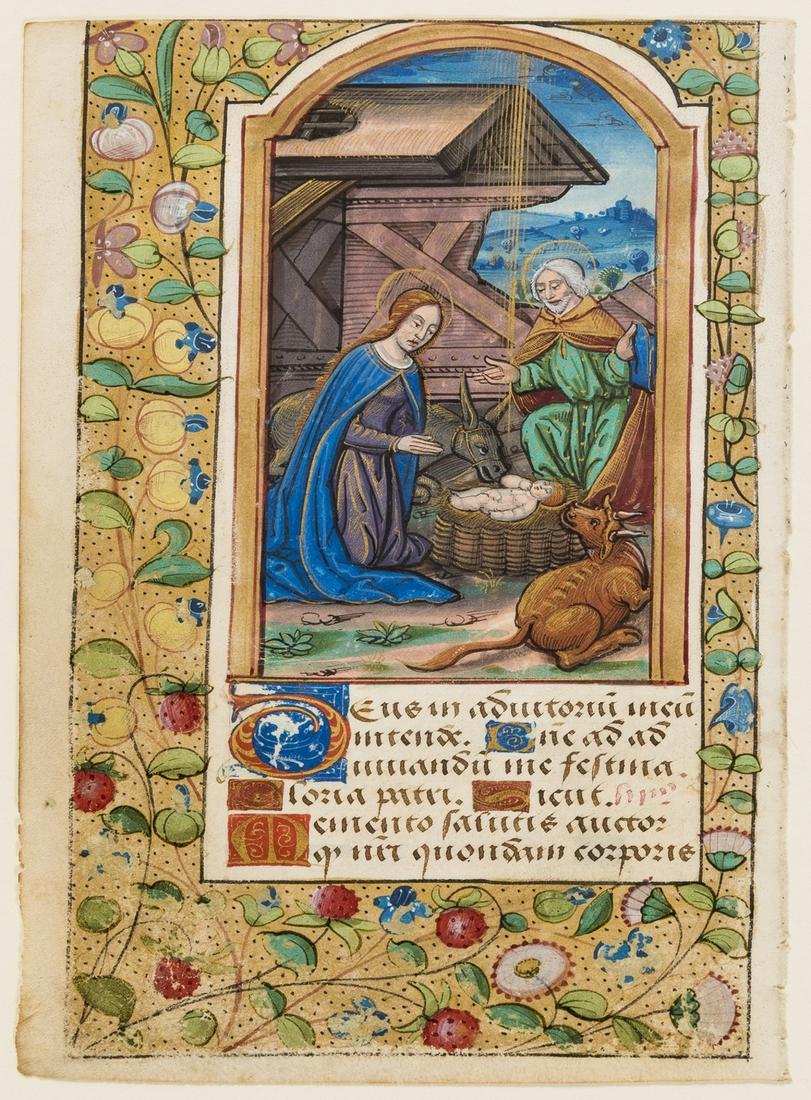 Deus in adiutoriũ meũ
intende. Dñe ad ad
iuuandũ me festina.
Gloria patri. Sicut.
Memento salutis auctor
q̃ nr̃i quondam corporis